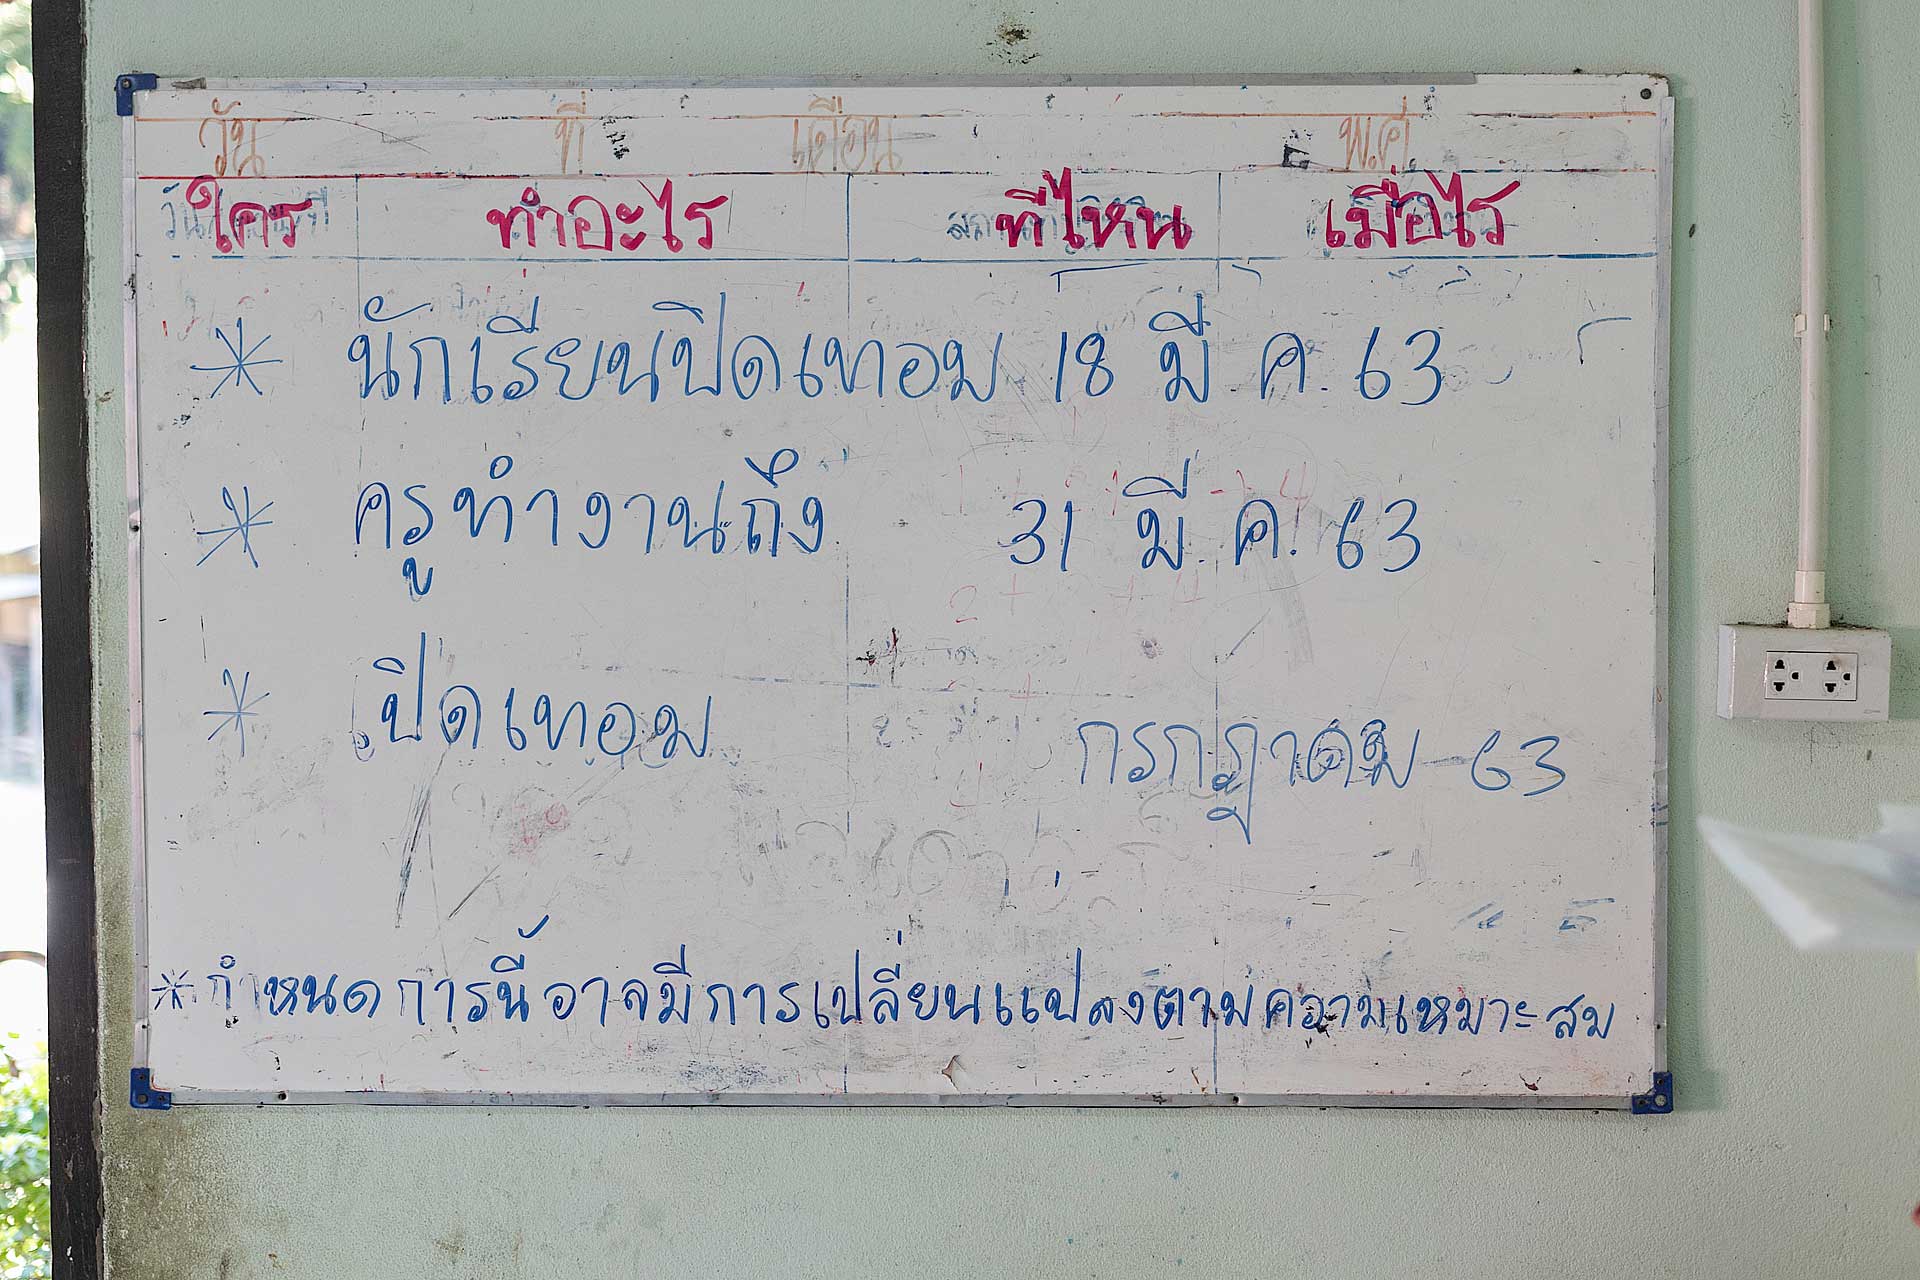 วัน ที่ เดือน พ.ศ.
ใคร ทำอะไร ที่ไหน เมื่อไร
* นักเรียนปิดเทอม 18 มี ค. 63
* ครูทำงานถึง 31 มี. ค. 63
* เปิดเทอม กรกฎาคม 63
* กำหนดการนี้อาจมีการเปลี่ยนแปลงตามความเหมาะสม